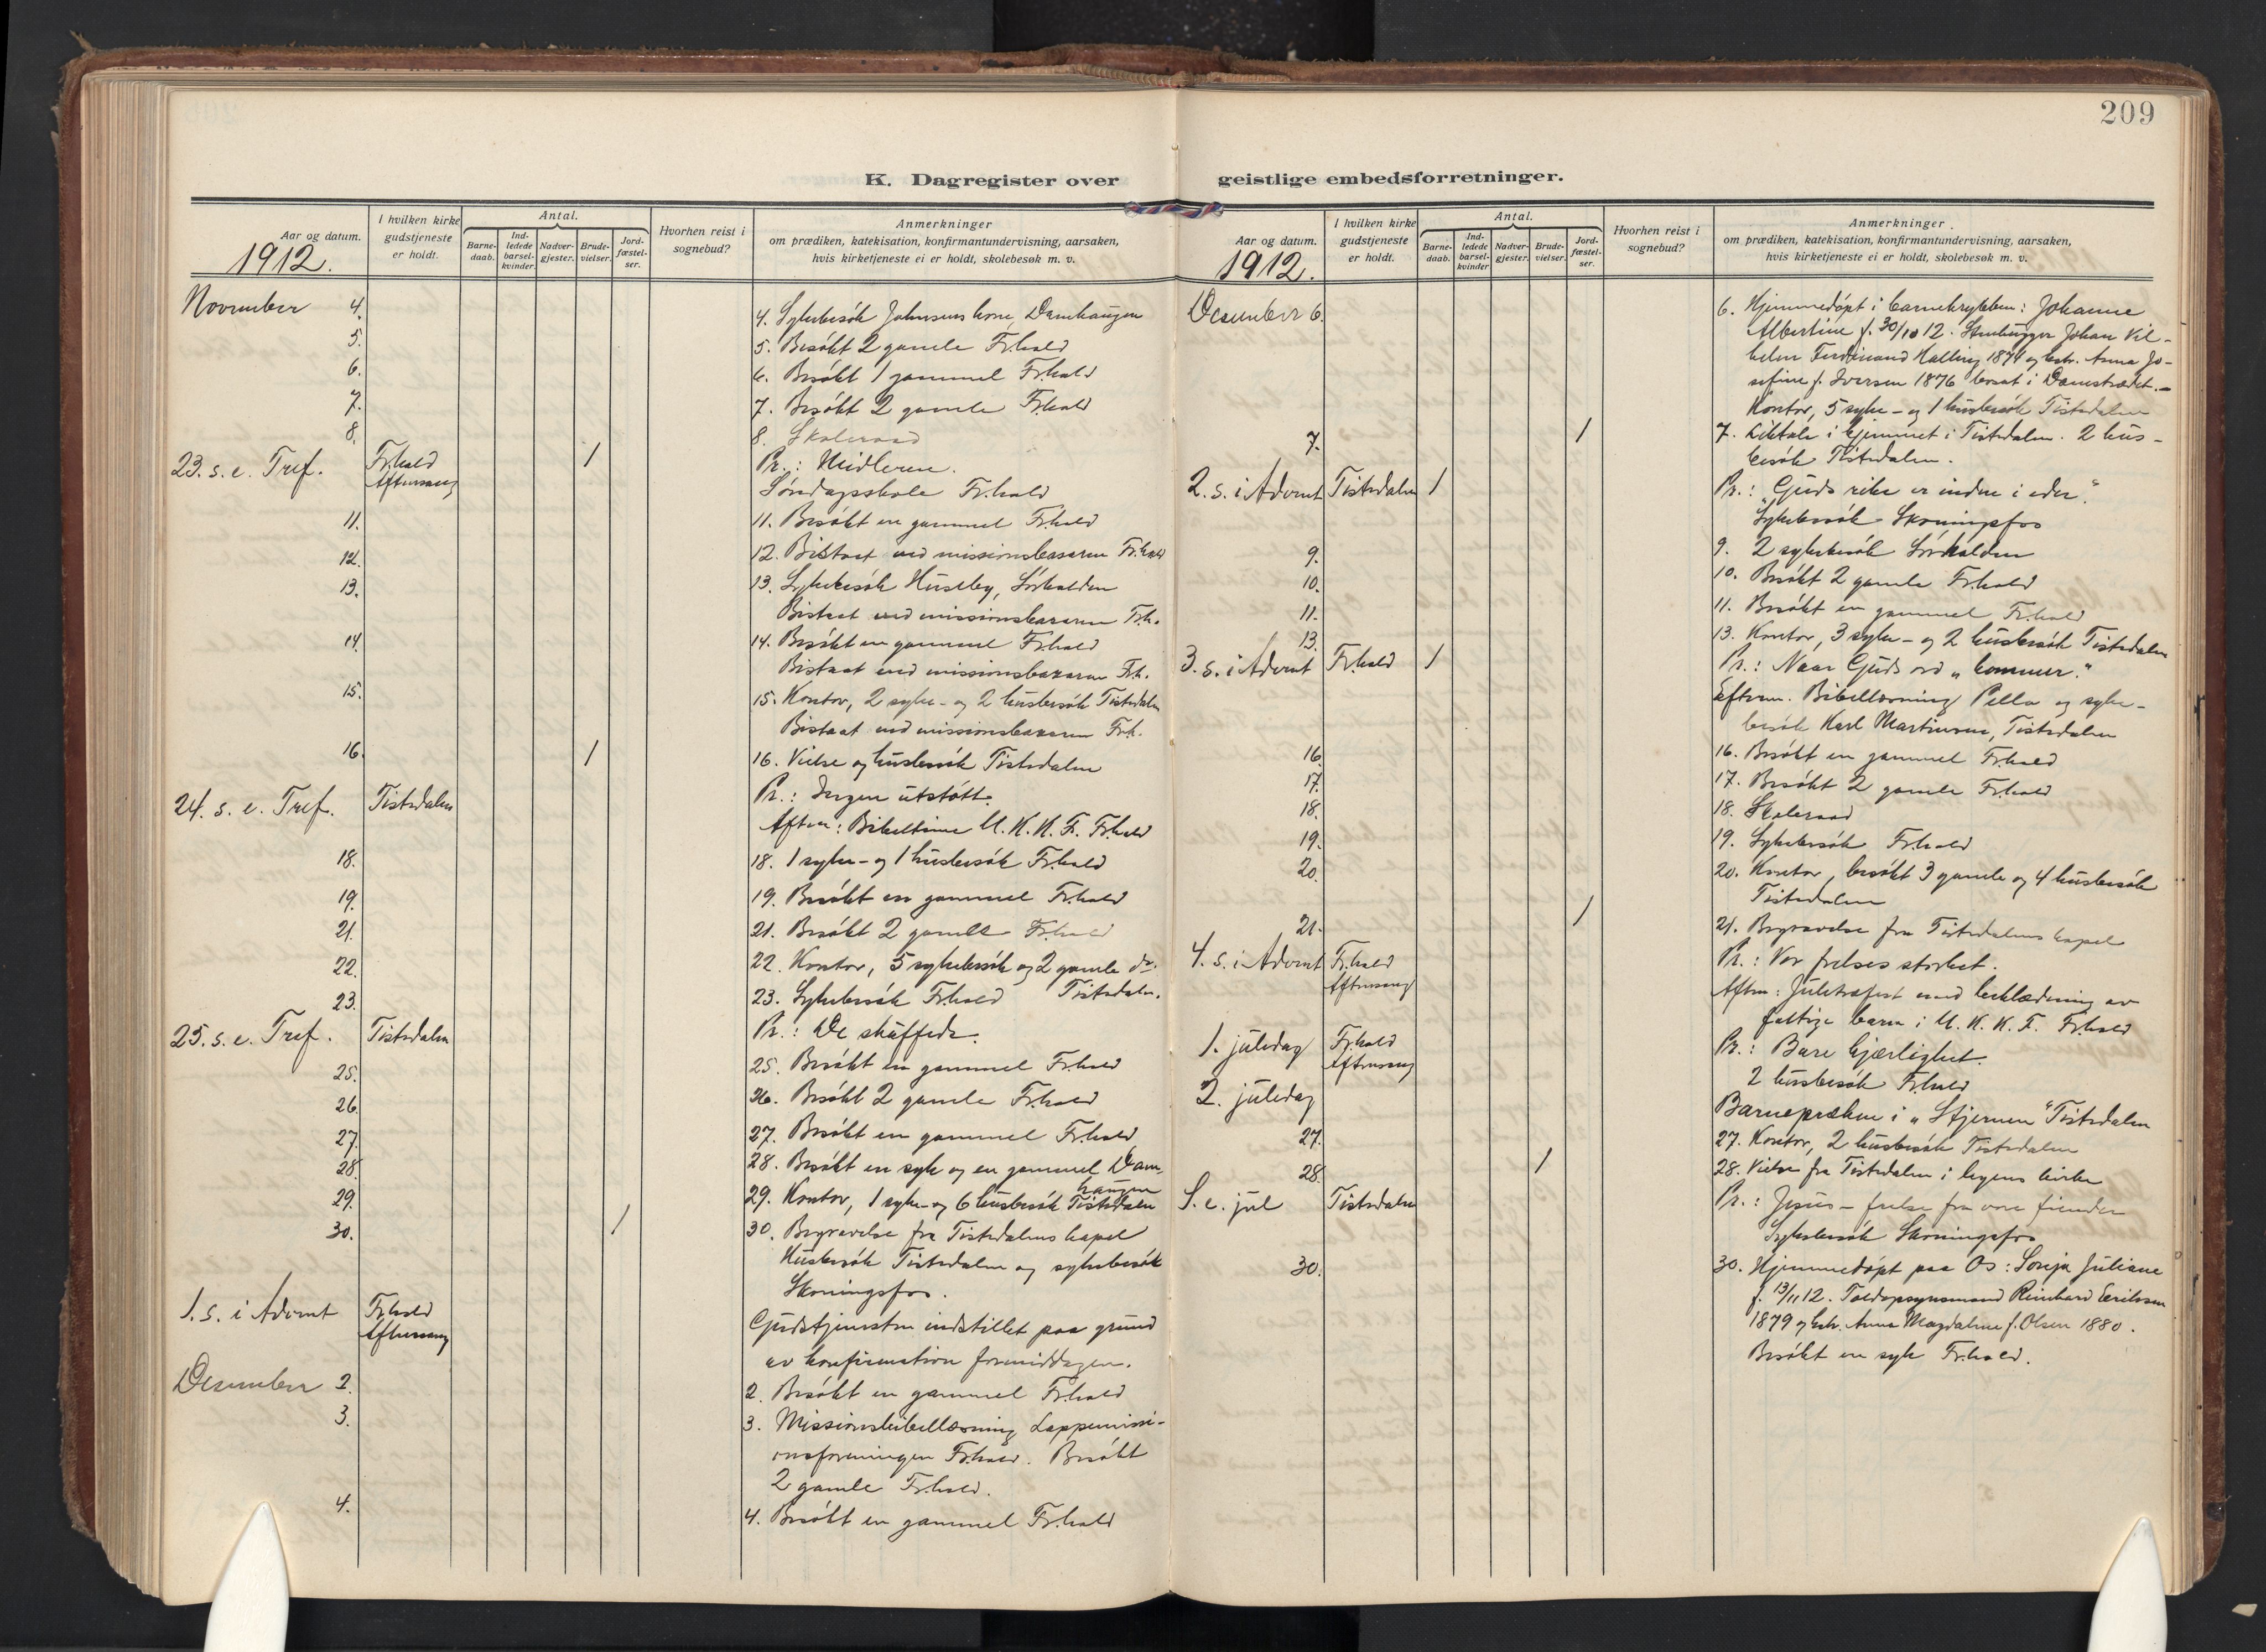 209
K. Dagregister over
geistlige embedsforretninger.
Aar og datum.
1912.
I hvilken kirke gudstjeneste er holdt.
Antal.
Barne-daab.
Ind-ledede barsel-kvinder.
Nadver-gjester.
Brude-vielser.
Jord-fæstel-ser.
Hvorhen reist i sognebud?
Anmerkninger
om prædiken, katekisation, konfirmantundervisning, aarsaken,
hvis kirketjeneste ei er holdt, skolebesøk m. v.
November 4. 4. Sykebesök Johnsens kone, Damhaugen
5. 5. Besökt 2 gamle Fr.hald
6. 6. Besökt 1 gammel Fr.hald
7. 7. Besökt 2 gamle Fr.hald
8. 8. Skoleraad
23. s. e. Tref. Fr.hald 1 Pr.: Midleren.
Aftensang Söndagsskole Fr.hald
11. 11. Besökt en gammel Fr.hald
12. 12. Bistaat ved missionsbasaren Fr.hald
13. 13. Sykebesök Huseby, Sörhalden
Bistaat ved missionsbasaren Fr.h.
14. 14. Besökt en gammel Fr.hald
Bistaat ved missionsbasaren Fr.h.
15. 15. Kontor, 2 syke- og 2 husbesök Tistedalen
Bistaat ved missionsbasaren Fr.h.
16. 1 16. Vielse og husbesök Tistedalen
24. s. e. Tref. Tistedalen Pr.: Ingen utstött.
Aften: Bibeltime U. K. K. F. Fr.hald
18. 18. 1 syke- og 1 husbesök Fr.hald
19. 19. Besökt en gammel Fr.hald
21. 21. Besökt 2 gamle Fr.hald
22. 22. Kontor, 5 sykebesök og 2 gamle do.
Tistedalen.
23. 23. Sykebesök Fr.hald
25. s. e. Tref. Tistedalen Pr.: De skuffede.
25. 25. Besökt en gammel Fr.hald
26. 26. Besökt 2 gamle Fr.hald
27. 27. Besökt en gammel Fr.hald
28. 28. Besökt en syk og en gammel Dam-
haugen
29. 29. Kontor, 1 syke- og 6 husbesök Tistedalen
30. 1 30. Begravelse fra Tistedalens kapel
Husbesök Tistedalen og sykebesök
Skoningsfos.
1. s. i Advent Fr.hald Gudstjenesten indstillet paa grund
Aftensang av konfirmation formiddagen.
Desember 2. 2. Besökt en gammel Fr.hald
3. 3. Missionsbibellæsning Lappemissi-
onsforeningen Fr.hald. Besökt
2 gamle Fr.hald.
4. 4. Besökt en gammel Fr.hald
Aar og datum.
1912.
I hvilken kirke gudstjeneste er holdt.
Antal.
Barne-daab.
Ind-ledede barsel-kvinder.
Nadver-gjester.
Brude-vielser.
Jord-fæstel-ser.
Hvorhen reist i sognebud?
Anmerkninger.
om prædiken, katekisation, konfirmantundervisning, aarsaken,
hvis kirketjeneste ei er holdt, skolebesøk m. v.
Desember 6. 6. Hjemmedöpt i barnekrybben: Johanne
Albertine f. 30/10 12. Stenhugger Johan Vil-
helm Ferdinand Halling 1874 og hstr. Anna Jo-
sefine f. Iversen 1876 bosat i Damstrædet.-
Kontor, 5 syke- og 1 husbesök Tistedalen
7. 1 7. Liktale i hjemmet i Tistedalen. 2 hus-
besök Tistedalen.
2. s. i Advent Tistedalen 1 Pr.: "Guds rike er inden i eder".
Sykebesök Skoningsfos
9. 9. 2 sykebesök Sörhalden
10. 10. Besökt 2 gamle Fr.hald
11. 11. Besökt en gammel Fr.hald
13. 13. Kontor, 3 syke- og 2 husbesök Tistedalen
3. s. i Advent Fr.hald 1 Pr.: Naar Guds ord "kommer."
Efterm. Bibellæsning Pella og syke-
besök Karl Martinsen, Tistedalen
16. 16. Besökt en gammel Fr.hald
17. 17. Besökt 2 gamle Fr.hald
18. 18. Skoleraad
19. 19. Sykebesök Fr.hald
20. 20. Kontor, besökt 3 gamle og 4 husbesök
Tistedalen
21. 1 21. Begravelse fra Tistedalens kapel
4. s. i Advent Fr.hald Pr.: Vor frelses storhet.
Aftensang Aften: Juletræfest med beklædning av
fattige barn i U. K. K. F. Fr.hald
1. juledag Fr.hald Pr.: Bare kjærlighet.
Aftensang 2 husbesök Fr.hald
2. juledag Barnepræken i "Stjernen" Tistedalen
27. 27. Kontor, 2 husbesök Tistedalen
28. 1 28. Vielse fra Tistedalen i byens kirke
S. e. jul Tistedalen Pr.: Jesus - frelse fra vore fiender
Sykebesök Skoningsfos
30. 30. Hjemmedöpt paa Os: Sonja Juliane
f. 13/11 12. Toldopsynsmand Reinhard Eriksen
1879 og hstr. Anna Magdalene f. Olsen 1880.
Besökt en syk Fr.hald.